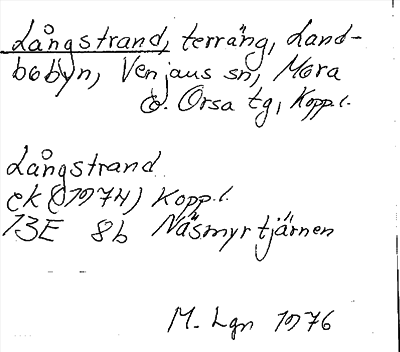 Långstrand, terräng, Land-
bobyn, Venjans sn, Mora
o. Orsa tg, Kopp.l.
Långstrand
ek (1974) Kopp.l.
13E 8b Näsmyrtjärnen
M. Lgn 1976